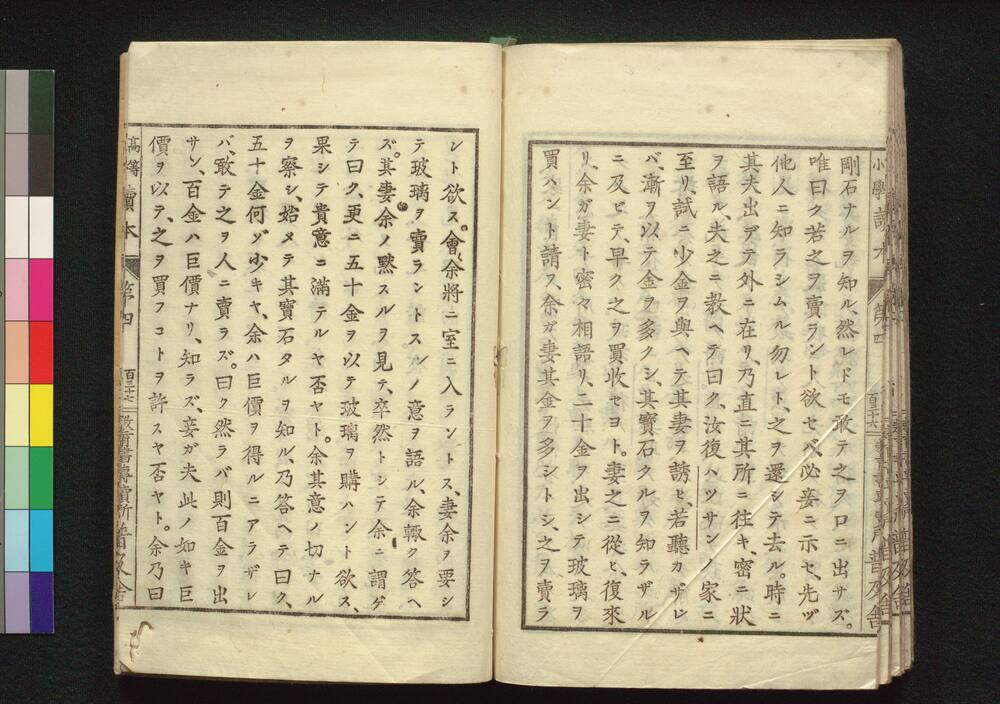 小學讀本 第四 百三十六 普及舍
剛石ナルヲ知ル、然レドモ敢テ之ヲ口ニ出サズ。
唯曰ク若之ヲ賣ラント欲セバ、必妾ニ示セ、先ヅ
他人ニ知ラシムル勿レト、之ヲ還シテ去ル。時ニ
其夫出デテ外ニ在リ、乃直ニ其所ニ往キ、密ニ狀
ヲ語ル、夫之ニ教ヘテ曰ク、汝復ハツサンノ家ニ
至リ、試ニ少金ヲ與ヘテ其妻ヲ誘ヒ、若聽カザレ
バ、漸ヲ以テ金ヲ多クシ、其寶石タルヲ知ラザル
ニ及ビテ、早ク之ヲ買收セヨト。妻之ニ從ヒ、復來
リ、余ガ妻ト密々相語リ、二十金ヲ出シテ玻璃ヲ
買ハント請フ、余ガ妻其金ヲ多シトシ、之ヲ賣ラ
ント欲ス。會余將ニ室ニ入ラントス、妻余ヲ要シ
テ玻璃ヲ賣ラントスルノ意ヲ語ル、余輙ク答ヘ
ズ。其妻余ノ默スルヲ見テ、卒然トシテ余ニ謂ゲ
テ曰ク、更ニ五十金ヲ以テ玻璃ヲ購ハント欲ス、
果シテ貴意ニ滿テルヤ否ヤト。余其意ノ切ナル
ヲ察シ、始メテ其寶石タルヲ知ル、乃答ヘテ曰ク、
五十金何ゾ少キヤ、余ハ巨價ヲ得ルニアラザレ
バ、敢テ之ヲ人ニ賣ラズ。曰ク然ラバ則百金ヲ出
サン、百金ハ巨價ナリ、知ラズ、妾ガ夫此ノ如キ巨
價ヲ以テ、之ヲ買フコトヲ許スヤ否ヤト。余乃曰
高等讀本 第四 百三十七 教育書專賣所普及舍